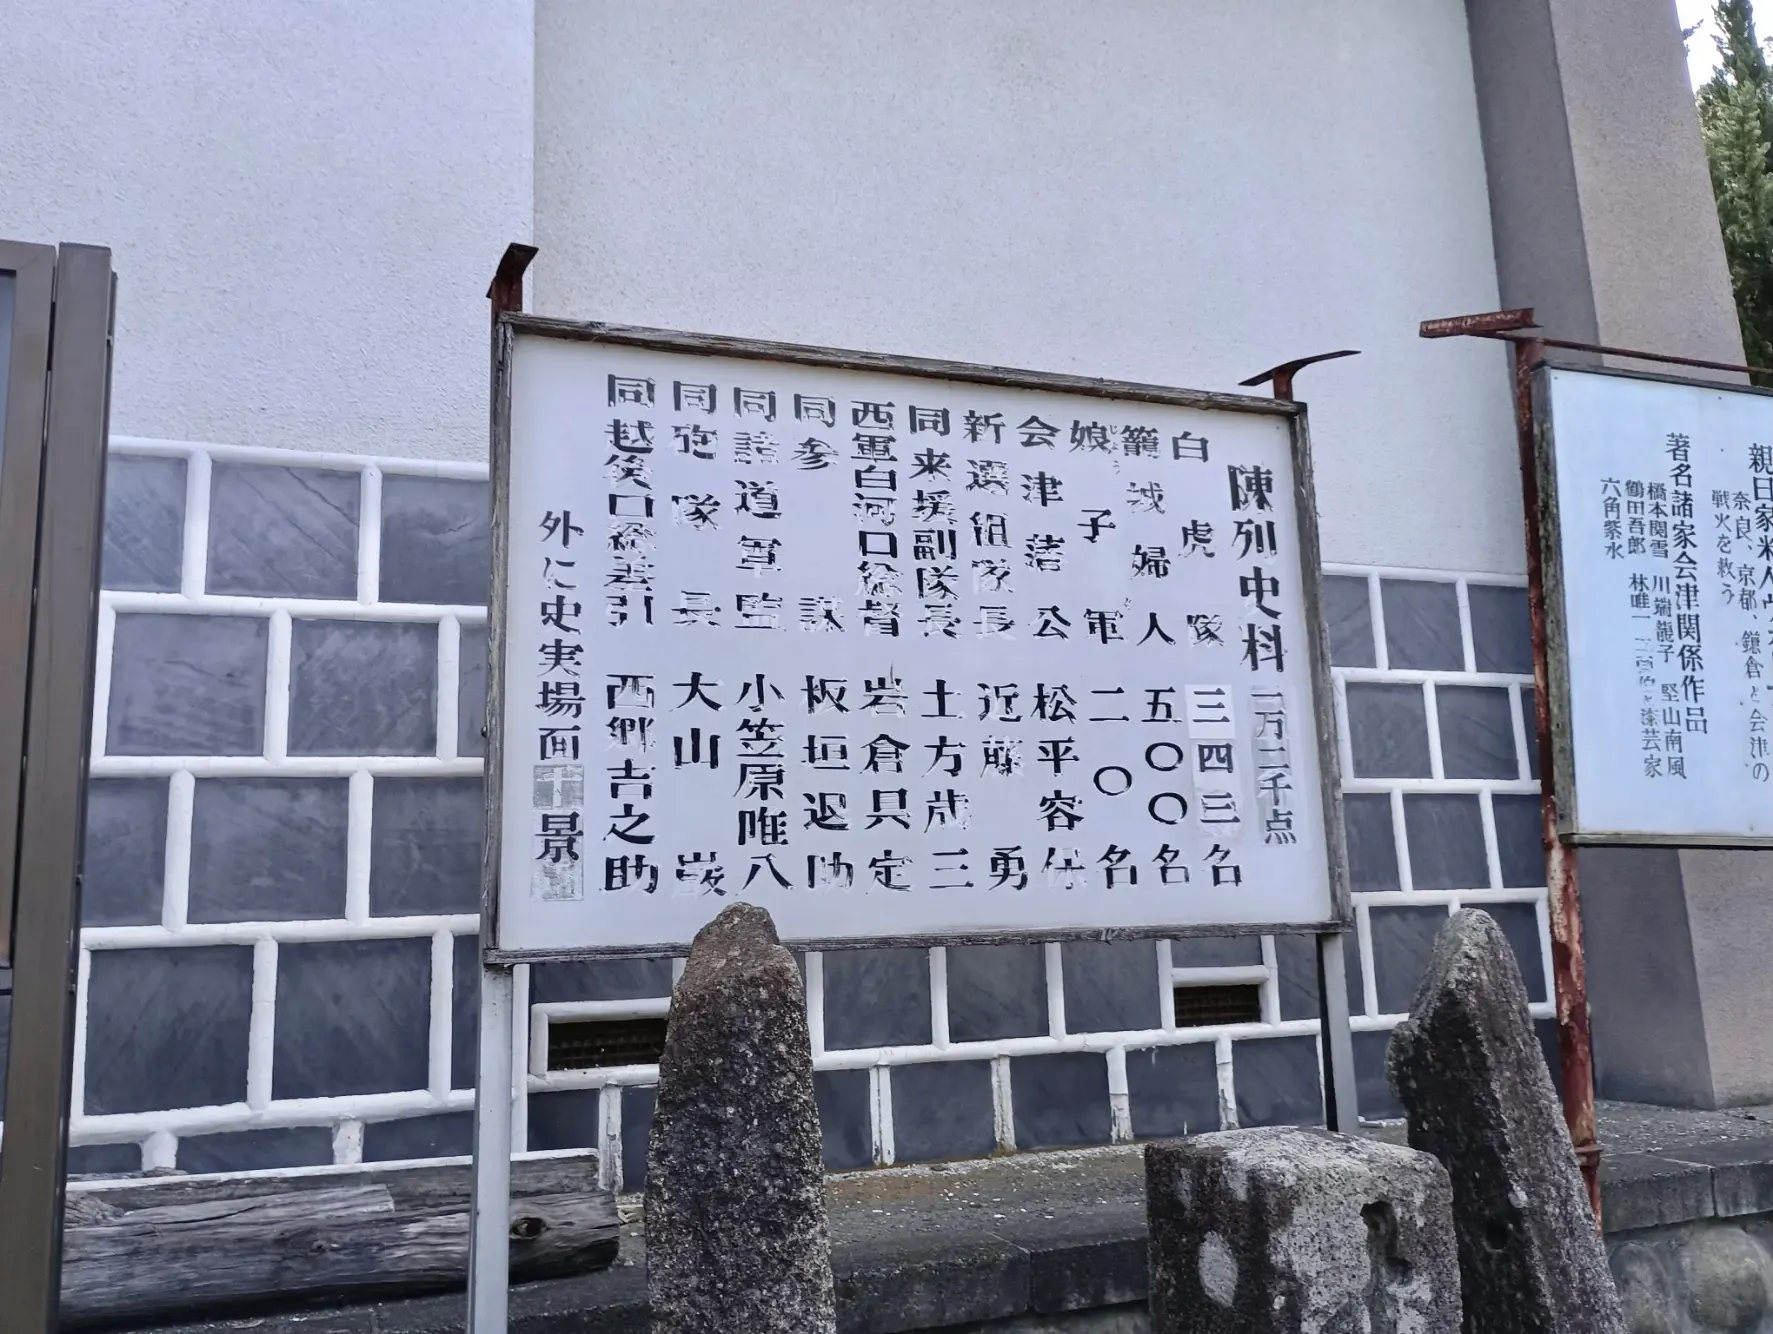 陳列史料 一万二千点
白虎隊 三四三名
籠城婦人 五〇〇名
娘子軍 二〇名
会津藩公 松平容保
新選組隊長 近藤勇
同来援副隊長 土方歳三
西軍白河口総督 岩倉具定
同参謀 板垣退助
同諸道軍監 小笠原唯八
同砲隊長 大山巌
同越後口総差引 西郷吉之助
外に史実場面十景
親日家米人
奈良、京都、鎌倉と会津の
戦火を救う
著名諸家会津関係作品
橋本関雪 川端龍子 堅山南風
鶴田吾郎 林唯一 漆芸家
六角紫水